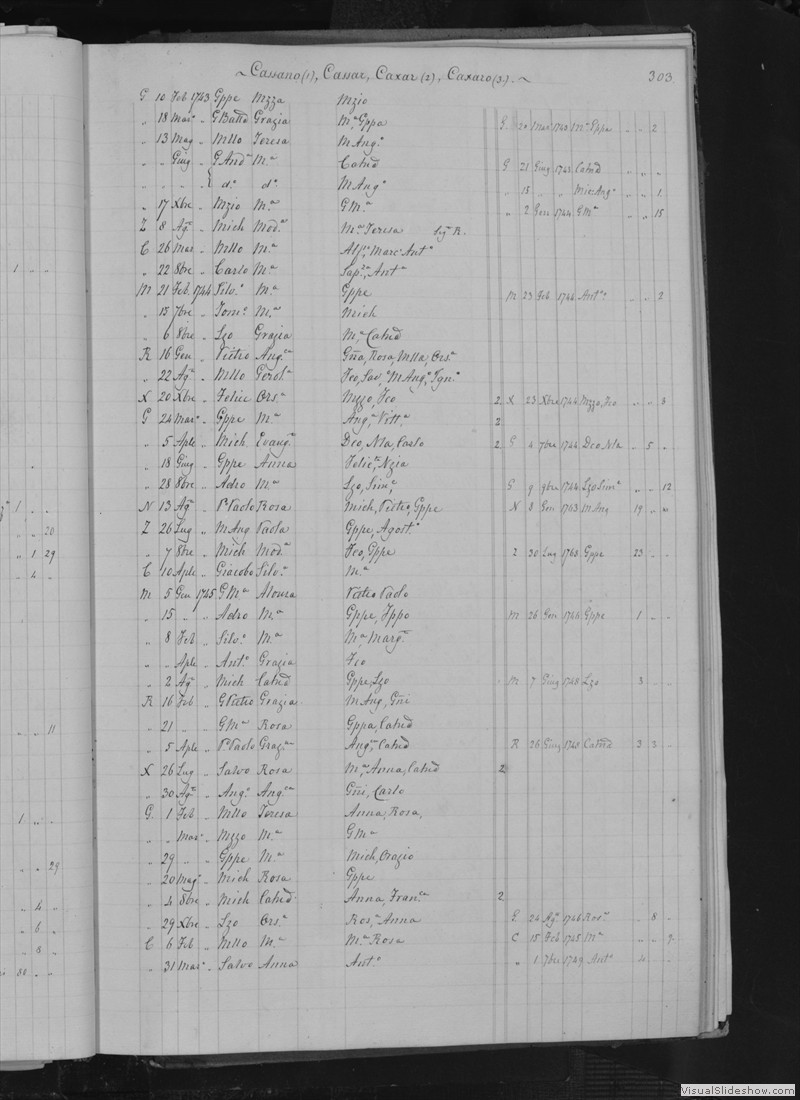 ~ Cassano (1), Cassar, Caxar (2), Caxaro (3). ~ 303
G 10 Feb 1743 Gppe Mzza Mzio
„ 18 Mar° „ G Batta Grazia M.ª Gppa G 20 Mar 1740 M.ª Gppa „ „ 2
„ 13 Mag „ Mllo Teresa M Ang.ª
„ „ Giug „ G And.ª M.ª Catnd G 21 Giug 1743 Catnd „ „ „
„ „ „ „ d.° d.° M Ang.° „ 15 „ „ Mic. Ang.° „ „ 1
„ 17 Xbre „ Mzio M.ª G M.ª „ 2 Gen 1744 G M.ª „ „ 15
Z 8 Ag.° „ Mich Mod.ª M.ª Teresa
C 26 Mar „ Mllo M.ª Alf.°, Marc' Ant.°
1 „ „ „ 22 8bre „ Carlo M.ª Sap.ª, Ant.ª
M 21 Feb 1744 Silv.° M.ª Gppe M 23 Feb 1746 Ant.° „ „ 2
„ 15 7bre „ Tom.° M.ª Mich
„ 6 8bre „ Lzo Grazia M.ª Catnd
R 16 Gen „ Pietro Ang.ca Gña, Rosa, Mlla, Ors.ª
„ 22 Ag.° „ Mllo Gerol.ª Fco, Sav.°, M Ang.°, Ign.°
X 20 Xbre „ Felice Ors.ª Mzzo, Fco 2 X 23 Xbre 1744 Mzzo, Fco „ „ 3
G 24 Mar° „ Gppe M.ª Ang.ª, Vitt.ª 2
„ 5 Aple „ Mich Evang.ª Dco, Nta, Carlo 2 G 4 7bre 1744 Dco Nla „ 5 „
„ 18 Giug „ Gppe Anna Felic.ª, Nzia
„ 28 8bre „ Adro M.ª Lzo, Sim.e G 9 9bre 1744 Lzo Sim.e „ „ 12
1 „ „ N 13 Ag.° „ P. Paolo Rosa Mich, Pietro, Gppe N 8 Gen 1763 M Ang 19 „ „
„ „ 20 Z 26 Lug „ M Ang Paola Gppe, Agost.°
„ 1 29 „ 7 8bre „ Mich Mod.ª Fco, Gppe Z 30 Lug 1768 Gppe 23 „ „
„ 4 „ C 10 Aple „ Giacobo Silv.ª M.ª
M 5 Gen 1745 G M.ª Aloisia Pietro Paolo
„ 15 „ „ Adro M.ª Gppe, Fppo M 26 Gen 1746 Gppe 1 „ „
„ 8 Feb „ Silv.° M.ª M.ª Marg.ª
„ „ Aple „ Ant.° Grazia Fco
„ 2 Ag.° „ Mich Catnd Gppe, Lzo M 7 Giug 1748 Lzo 3 „ „
R 16 Feb „ G Pietro Grazia M Ang, Gñi
„ „ 11 „ 21 „ „ G M.ª Rosa Gppa, Catnd
„ 5 Aple „ P. Paolo Graz.ª Ang.ca, Catnd R 26 Giug 1748 Catnd 3 3 „
X 26 Lug „ Salvo Rosa M.ª, Anna, Catnd 2
„ 30 Ag.° „ Ang.° Ang.ca Gñi, Carlo
1 „ „ G 1 Feb „ Mllo Teresa Anna, Rosa,
„ „ Mar° „ Mzzo M.ª G M.ª
„ „ 29 „ 29 „ „ Gppe M.ª Mich, Orazio
„ 20 Mag° „ Mich Rosa Gppe
„ 4 „ „ 4 8bre „ Mich Catnd Anna, Fran.ca 2
„ 6 „ „ 29 Xbre „ Lzo Ors.ª Ros.ª, Anna E 24 Ag.° 1746 Ros.ª „ 8 „
„ 8 „ C 6 Feb „ Mllo M.ª M.ª Rosa C 15 Feb 1745 M.ª „ „ 9
30 „ „ „ 31 Mar° „ Salvo Anna Ant.° „ 1 7bre 1749 Ant.° 4 „ „
VisualSlideshow.com